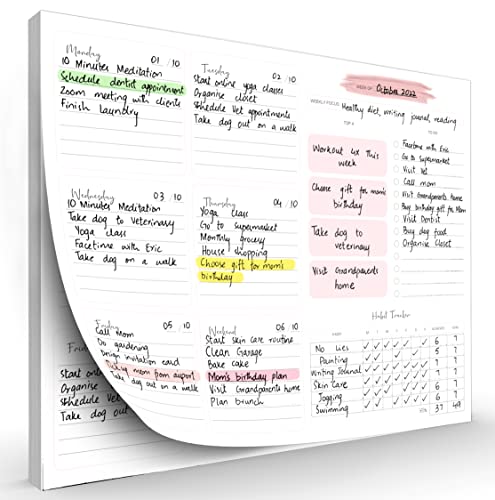 Monday
01 / 10
10 Minutes Meditation
Schedule dentist appointment
Zoom meeting with clients
Finish Laundry
Tuesday
02 / 10
Start online yoga classes
Organise closet
Schedule Vet appointments
Take dog out on a walk
WEEK OF: October 2022
WEEKLY FOCUS Healthy diet, writing journal, reading
TO DO
Workout 4x This
week
Choose gift for mom's
birthday
Take dog to
veterinary
Visit Grandparents
home
Facetime with Eric
Go to supermarket
Visit Vet
Call mom
Visit Grandparents home
Buy birthday gift for Mom
Visit Dentist
Buy dog food
Organise Closet
Wednesday
03 / 10
10 Minutes' Meditation
Take dog to veterinary
Yoga class
Facetime with Eric
Take dog on a walk
Thursday
04 / 10
Yoga class
Go to supermarket
Monthly grocery
House shopping
Choose gift for mom's
birthday
Friday
05 / 10
Call mom
Do gardening
Design invitation card
Pickup mom from airport
Take dog out on walk
Weekend
06 / 10
Start skin care routine
Clean Garage
Bake cake
Mom's birthday plan
Visit Grandparents home
Plan brunch
Habit Tracker
M T W T F S S
No lies ✓ ✓ ✓ ✓ ✓ ✓ 6 7
Painting
Writing Journal
Skin care
Jogging
Swimming
TOTAL 37 49
Fri
Start on
Organise
Schedule Vet
Take dog out